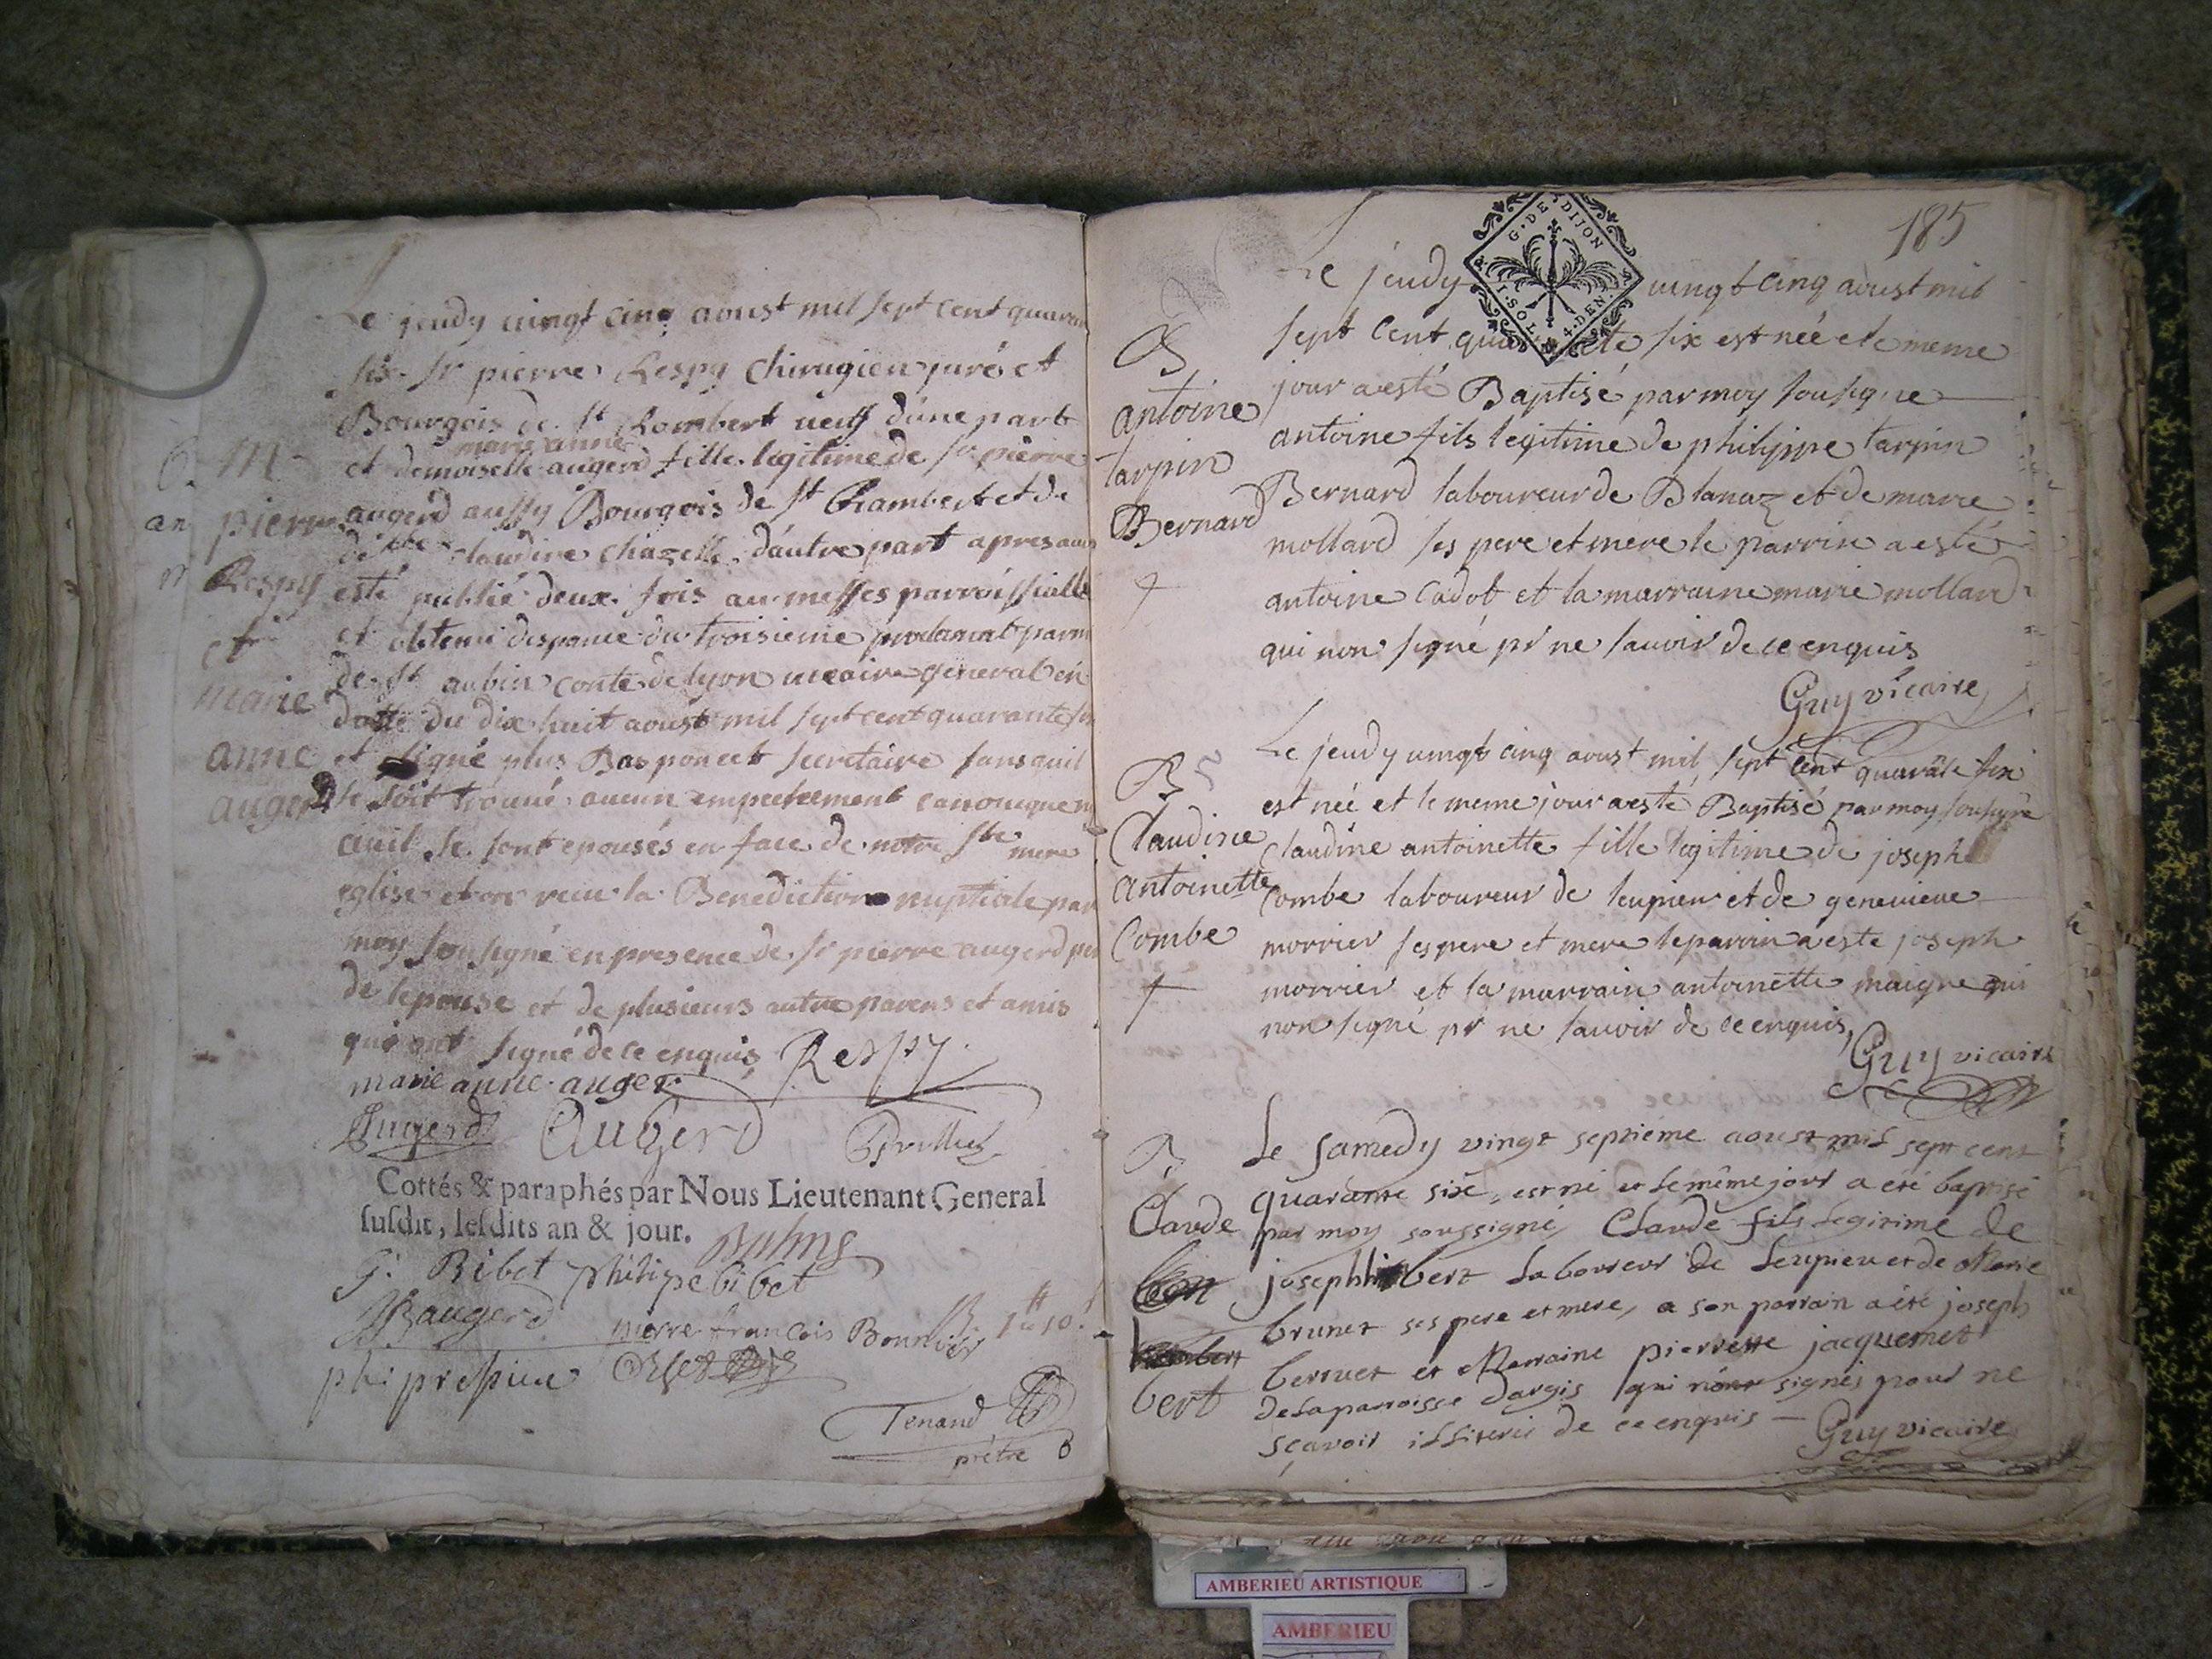 Le jeudy vingt cinq aoust mil sept cent quaran
six Sr pierre Respy Chirugien juré et
Bourgois de St Rambert veuf d'une part
marie anne
et demoiselle augerd fille legitime de Sr pierre
augerd aussy Bourgois de St Rambert et de
claudine chazelle d'autre part apres
esté publié deux fois au messes parroissialle
et obtenu dispance du troisieme
de St aubin conte de lyon vicaire general en
datte du dix huit aoust mil sept cent quarante
et signé plus Bas poncet secretaire sans quil
se soit trouvé aucun empechement canonique
civil se sont epousés en face de notre Ste mere
eglise et on recu la Benediction nuptiale par
moy sousigné en presence de Sr pierre augerd
de lepouse et de plusieurs autre parens et amis
qui ont signé de ce enquis Respy
marie anne auger
Augerd Augerd
Cottés & paraphés par Nous Lieutenant General
susdit, lesdits an & jour.
G. Ribet philipe bibet
augerd
pierre francois Bonnier
Tenand
prêtre
M
pierre
Respy
et
marie
anne
augerd
185
G. DE DIJON
I. SOL. 4. DEN.
Le jeudy vingt cinq aoust mil
sept cent quarante six est née et le meme
jour a esté Baptisé par moy sousigne
antoine fils legitime de philippe tarpin
Bernard laboureur de Blanaz et de marie
mollard ses pere et mere le parrin a esté
antoine Cadot et la marraine marie mollard
qui non signé pr ne sauoir de ce enquis
Guy vicaire
B
antoine
tarpin
Bernard
Le jeudy vingt cinq aoust mil sept cent quarāte six
est née et le meme jour a esté Baptisé par moy sousigné
claudine antoinette fille legitime de joseph
Combe laboureur de leupieu et de genevieve
morrier ses pere et mere le parrin a este joseph
morrier et la marrain antoinette maigre qui
non signé pr ne sauoir de ce enquis
Guy vicaire
B
Claudine
antoinette
Combe
Le samedy vingt septiéme aoust mil sept cent
quarante six, est né et le même jour a eté baptisé
par moy soussigné Claude fils legitime de
joseph bert laboureur de Leupieu et de Marie
brunet ses pere et mere, a son parrain a eté joseph
berruet et Marraine pierrette jacquemet
de la parroisse dargis qui n'ont signés pour ne
sçavoir de ce enquis
Guy vicaire
B
Claude
bert
AMBERIEU ARTISTIQUE
AMBERIEU